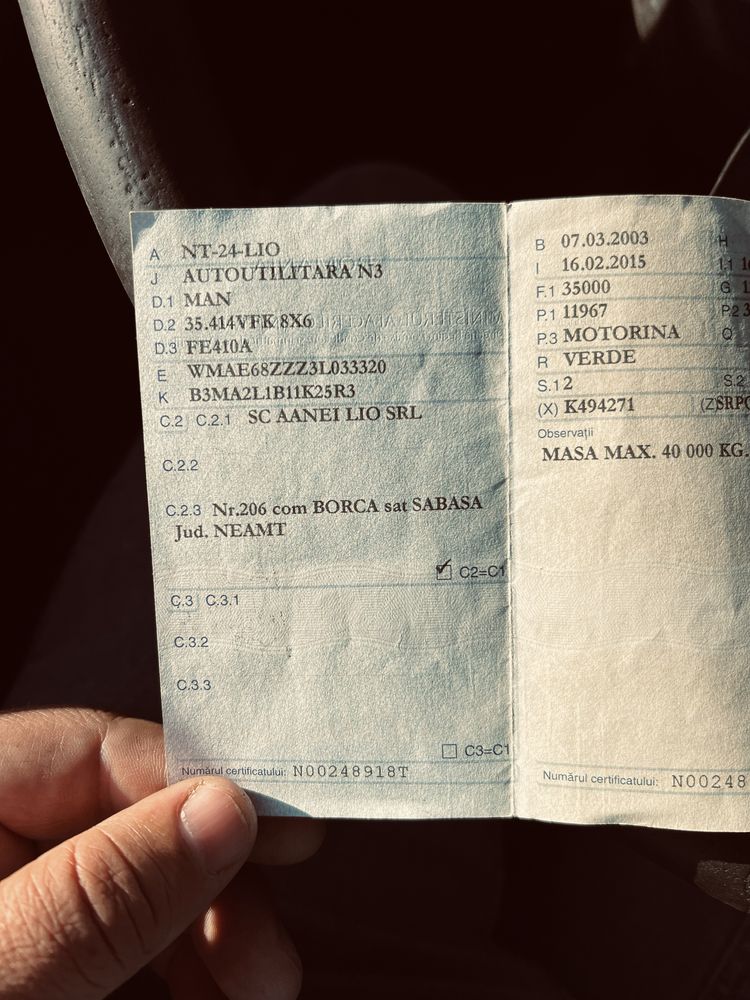 A NT-24-LIO
J AUTOUTILITARA N3
D.1 MAN
D.2 35.414VFK 8X6
D.3 FE410A
E WMAE68ZZZ3L033320
K B3MA2L1B11K25R3
C.2 C.2.1 SC AANEI LIO SRL
C.2.2
C.2.3 Nr.206 com BORCA sat SABASA
Jud. NEAMT
C2=C1
C.3 C.3.1
C.3.2
C.3.3
C3=C1
Numărul certificatului: N00248918T
B 07.03.2003 H
I 16.02.2015 I.1
F.1 35000 G
P.1 11967 P.2
P.3 MOTORINA Q
R VERDE
S.1 2 S.2
(X) K494271 (Z)SRPC
Observații
MASA MAX. 40 000 KG.
Numărul certificatului: N00248